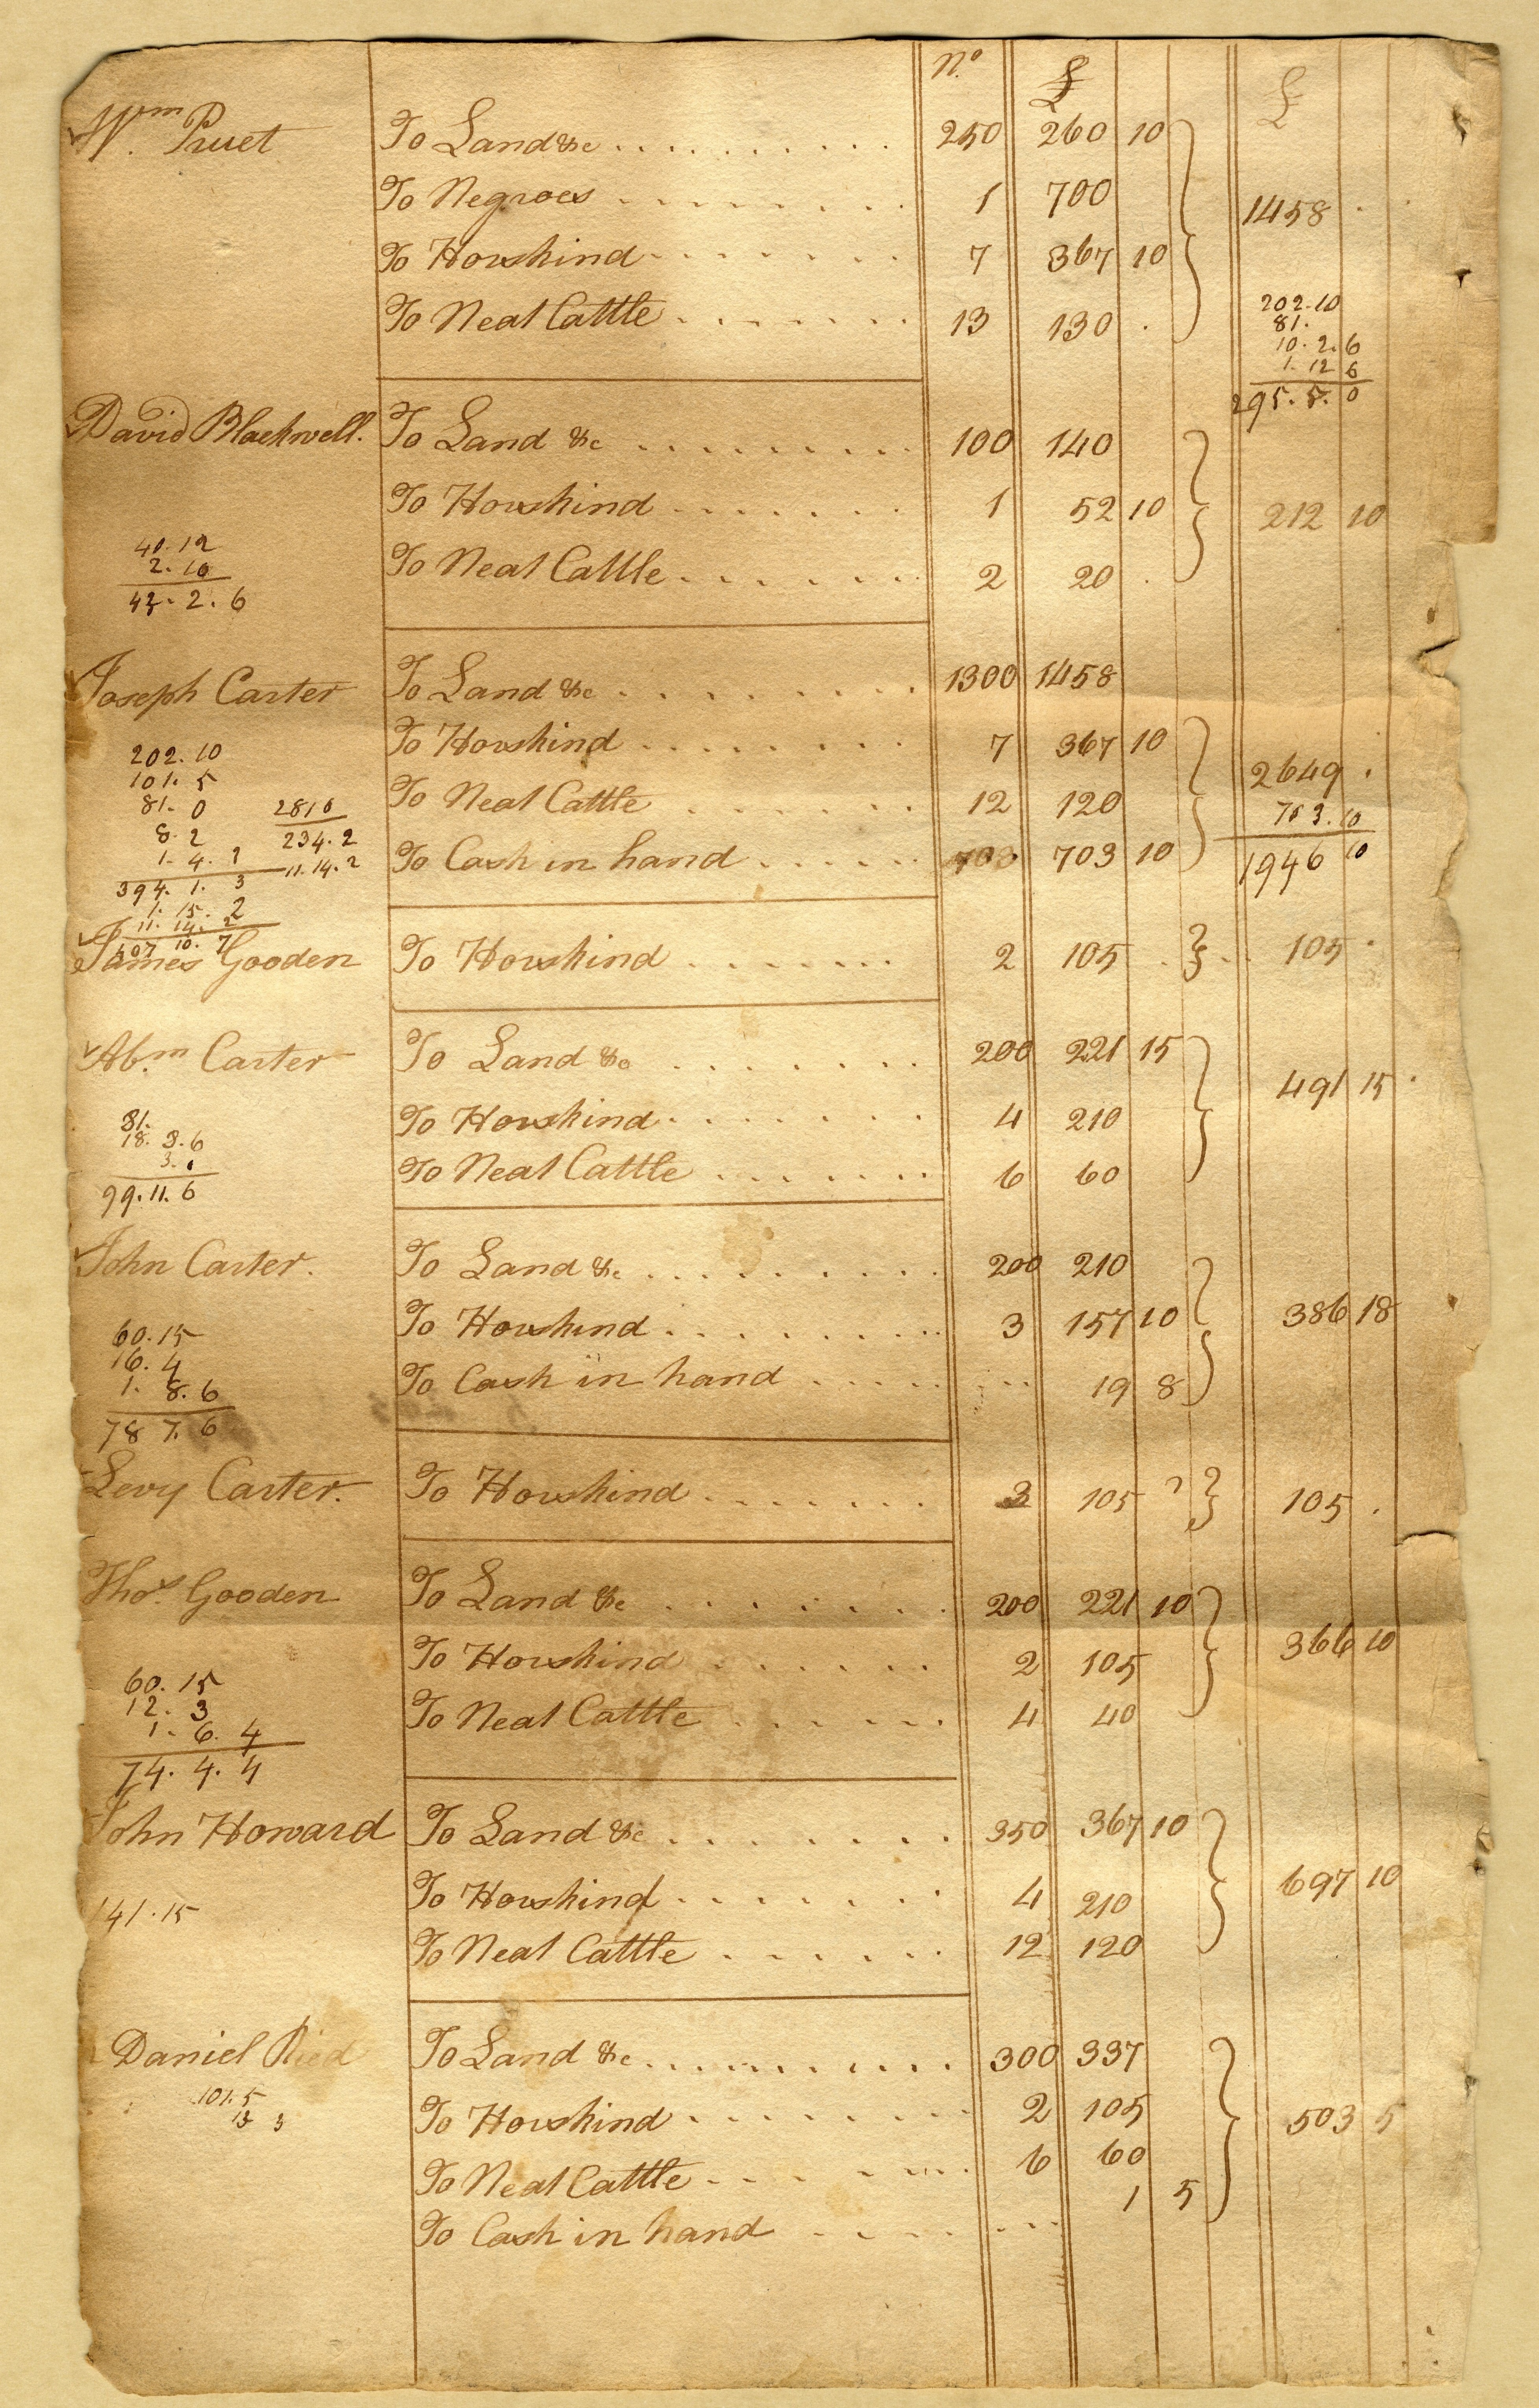 No. £ £
Wm. Pruet To Land &c 250 260 10
To Negroes 1 700 1458
To Horskind 7 367 10
To Neat Cattle 13 130
202.10
81.
10. 2. 6
1. 12 6
295. 5. 0
David Blackwell. To Land &c 100 140
To Horskind 1 52 10 212 10
To Neat Cattle 2 20
40. 12
2. 10
43. 2. 6
Joseph Carter To Land &c 1300 1458
To Horskind 7 367 10 2649
To Neat Cattle 12 120 703. 10
To Cash in hand 703 703 10 1946 10
202. 10
101. 5
81. 0 2810
8. 2 234. 2
1. 4. 11. 14. 2
394. 1. 3
1. 15. 2
11. 14. 2
407 10. 7
James Gooden To Horskind 2 105 105
Abm. Carter To Land &c 200 221 15
To Horskind 4 210 491 15
To Neat Cattle 6 60
81.
18. 3. 6
3.
99. 11. 6
John Carter. To Land &c 200 210
To Horskind 3 157 10 386 18
To Cash in hand 19 8
60. 15
16. 4
1. 8. 6
78 7. 6
Levy Carter. To Horskind 105 105
Thos. Gooden To Land &c 200 221 10
To Horskind 2 105 366 10
To Neat Cattle 4 40
60. 15
12. 3
1. 6. 4
74. 4. 4
John Howard To Land &c 350 367 10
To Horskind 4 210 697 10
To Neat Cattle 12 120
141. 15
Daniel Ried To Land &c 300 337
To Horskind 2 105 503 5
To Neat Cattle 6 60
To Cash in hand 1 5
101. 5
13 3